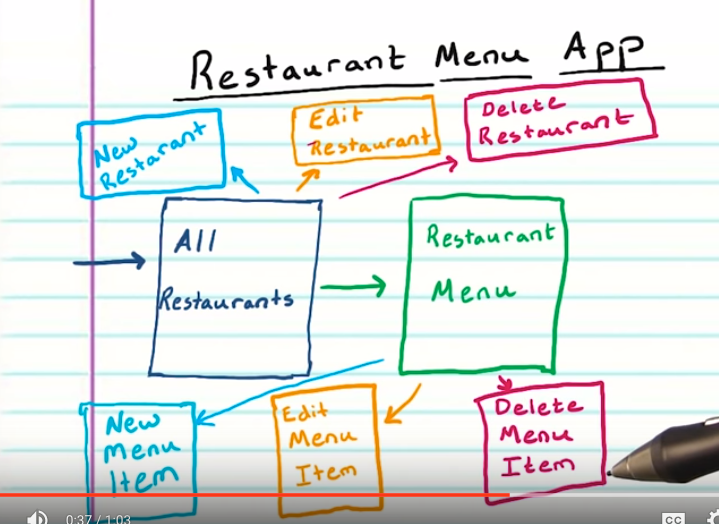 Restaurant Menu App
New
Restarant
Edit
Restaurant
Delete
Restaurant
All
Restaurants
Restaurant
Menu
New
Menu
Item
Edit
Menu
Item
Delete
Menu
Item
0:37 / 1:03
CC